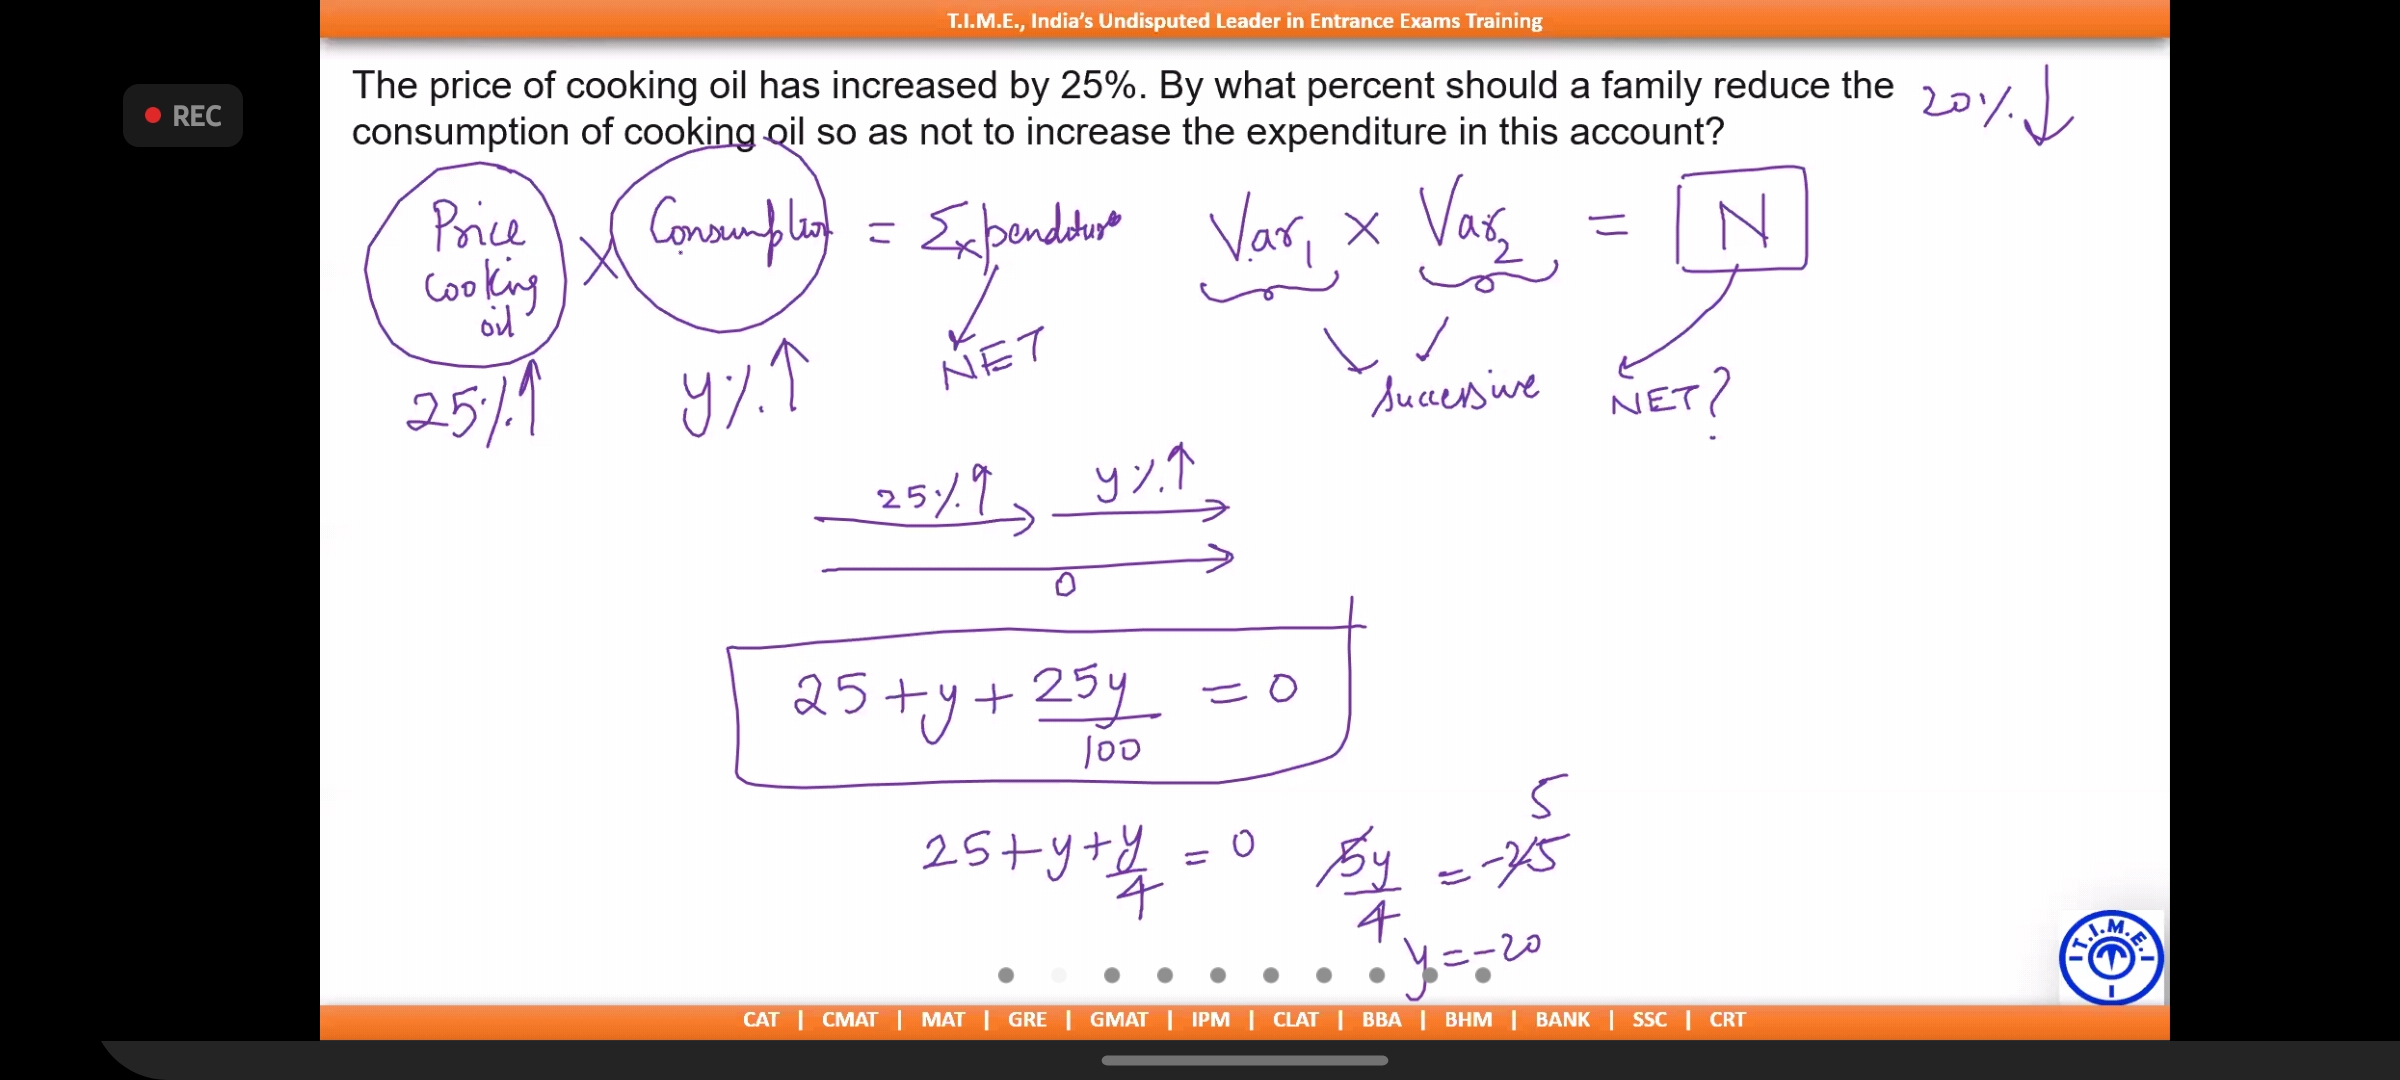 T.I.M.E., India's Undisputed Leader in Entrance Exams Training
REC
The price of cooking oil has increased by 25%. By what percent should a family reduce the
consumption of cooking oil so as not to increase the expenditure in this account?
20% ↓
Price cooking oil × Consumption = Expenditure
Var₁ × Var₂ = N
25% ↑
y% ↑
NET
Successive
NET?
25% ↑
y% ↑
0
25 + y + 25y/100 = 0
25 + y + y/4 = 0
5y/4 = -25
5
y = -20
T.I.M.E.
CAT | CMAT | MAT | GRE | GMAT | IPM | CLAT | BBA | BHM | BANK | SSC | CRT